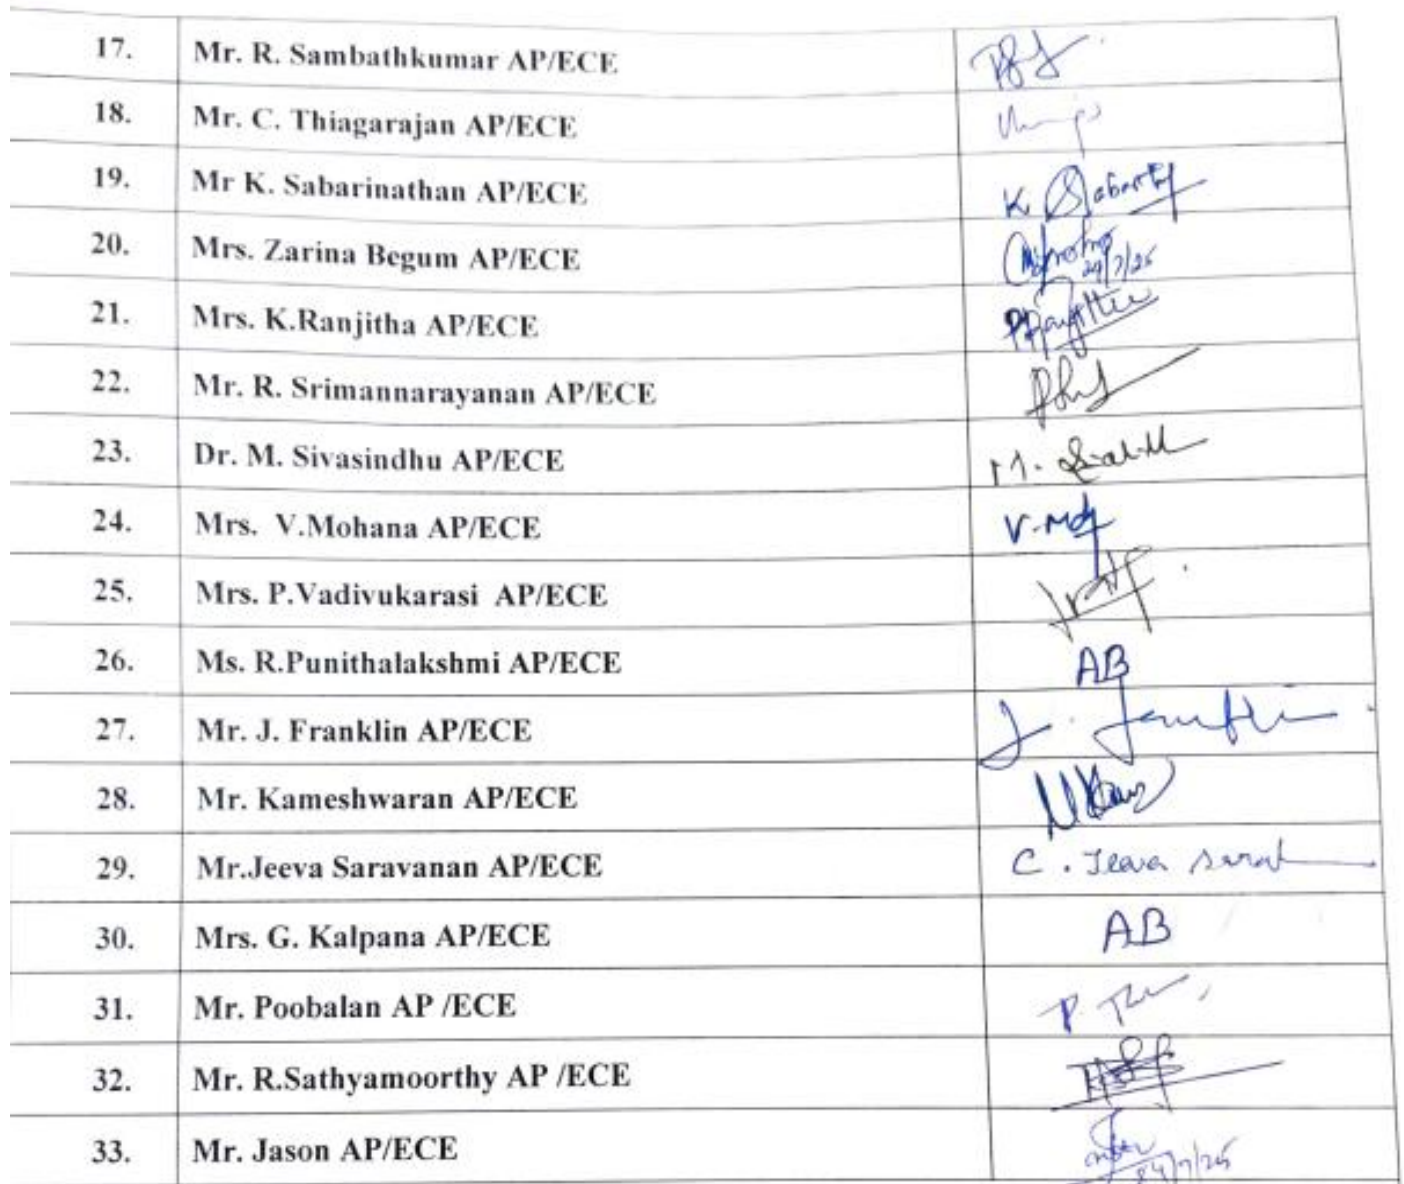 17. Mr. R. Sambathkumar AP/ECE
18. Mr. C. Thiagarajan AP/ECE
19. Mr K. Sabarinathan AP/ECE K
20. Mrs. Zarina Begum AP/ECE
21. Mrs. K.Ranjitha AP/ECE
22. Mr. R. Srimannarayanan AP/ECE
23. Dr. M. Sivasindhu AP/ECE M.
24. Mrs. V.Mohana AP/ECE
25. Mrs. P.Vadivukarasi AP/ECE
26. Ms. R.Punithalakshmi AP/ECE AB
27. Mr. J. Franklin AP/ECE J.
28. Mr. Kameshwaran AP/ECE
29. Mr.Jeeva Saravanan AP/ECE C. Jeeva
30. Mrs. G. Kalpana AP/ECE AB
31. Mr. Poobalan AP /ECE P.
32. Mr. R.Sathyamoorthy AP /ECE
33. Mr. Jason AP/ECE